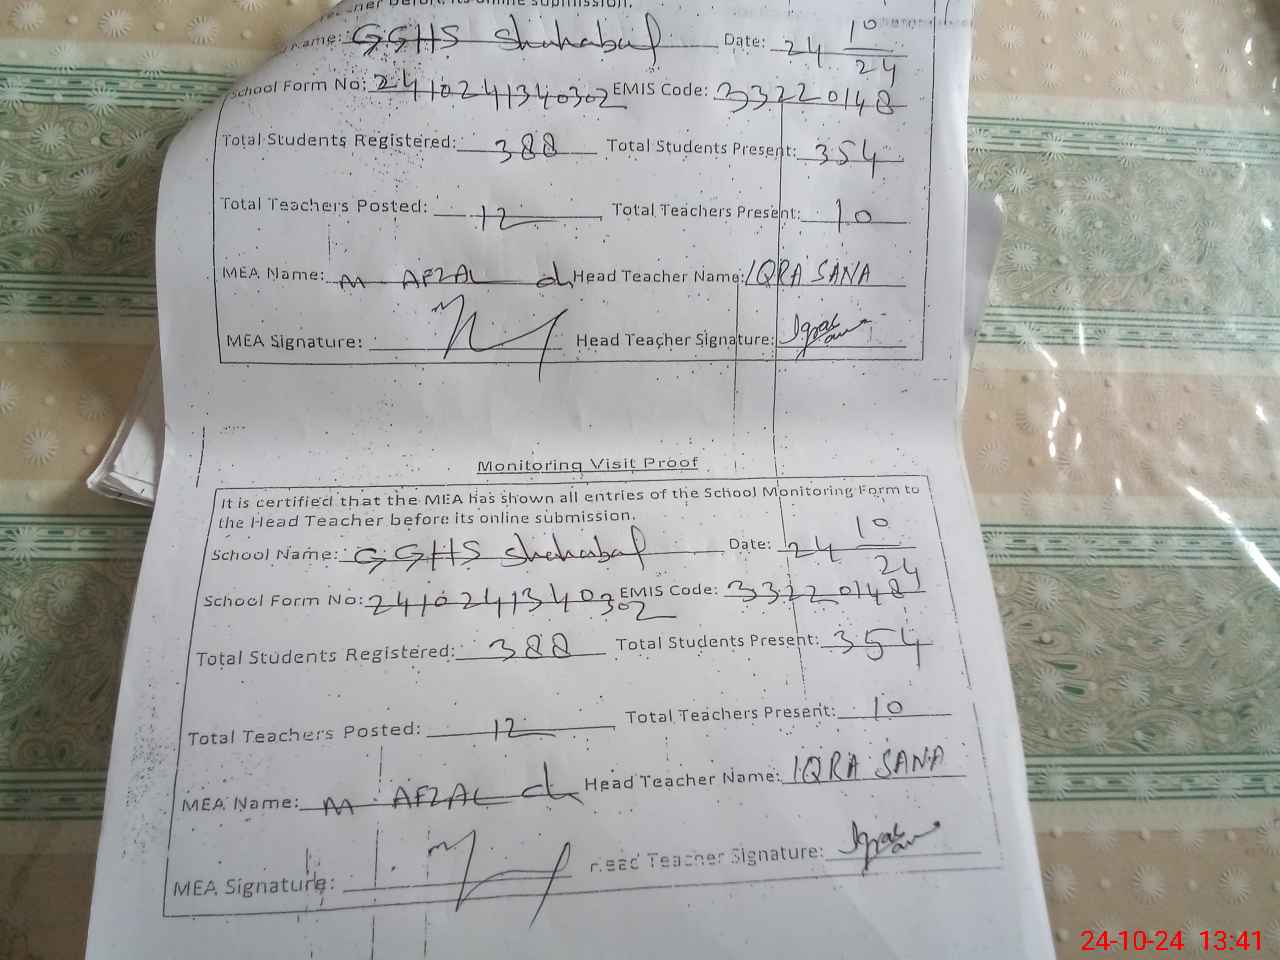 before its online submission.
name: GGHS Shahabal Date: 24 10/24
School Form No: 2410241340302 EMIS Code: 33220148
Total Students Registered: 388 Total Students Present: 354
Total Teachers Posted: 12 Total Teachers Present: 10
MEA Name: M AFZAL ch Head Teacher Name: IQRA SANA
MEA Signature: Head Teacher Signature: Iqra
Monitoring Visit Proof
It is certified that the MEA has shown all entries of the School Monitoring Form to
the Head Teacher before its online submission.
School Name: GGHS Shahabal Date: 24 10/24
School Form No: 2410241340302 EMIS Code: 33220148
Total Students Registered: 388 Total Students Present: 354
Total Teachers Posted: 12 Total Teachers Present: 10
MEA Name: M AFZAL ch Head Teacher Name: IQRA SANA
MEA Signature: Head Teacher Signature: Iqra
24-10-24 13:41